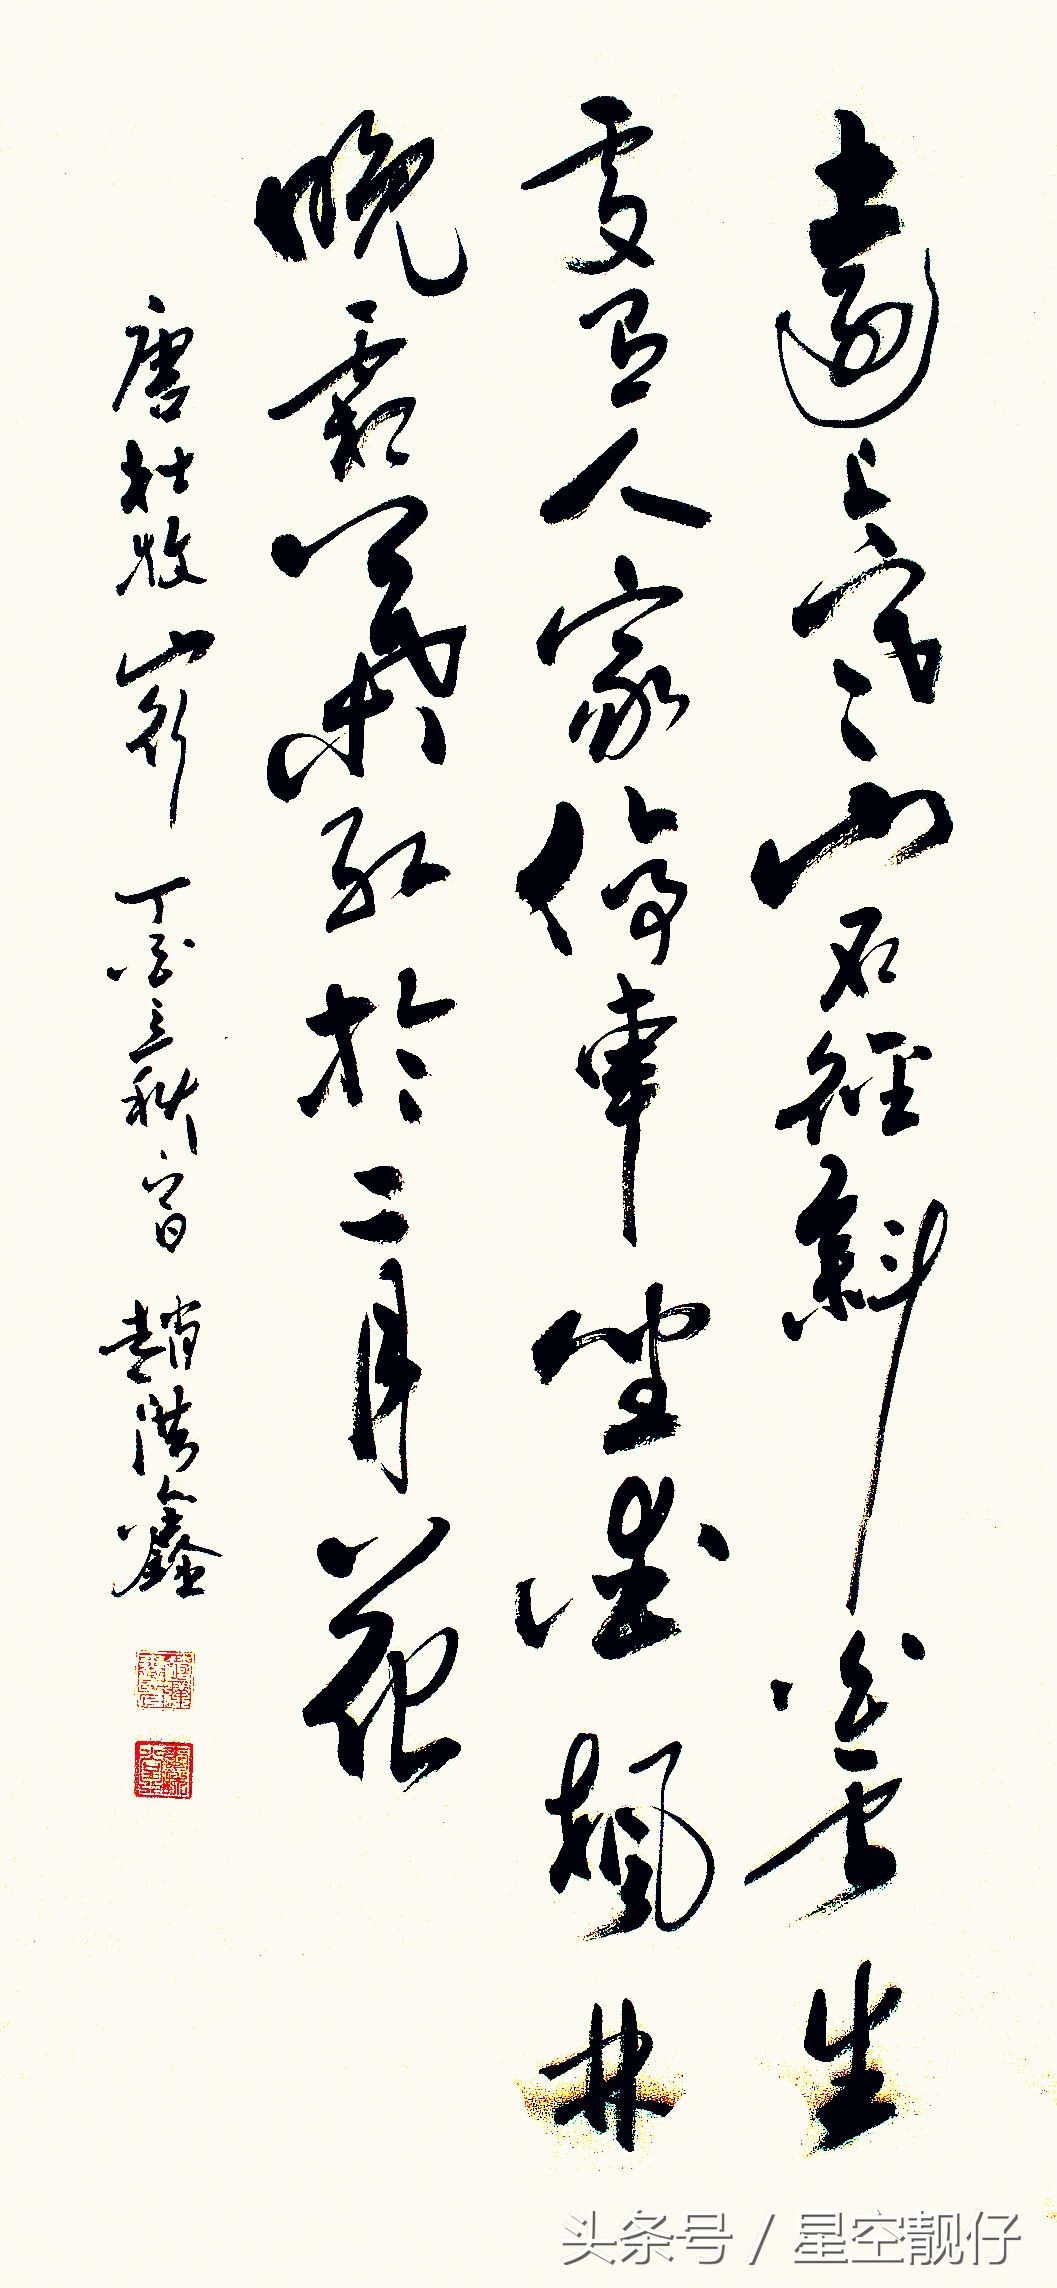 遠上寒山石徑斜白雲生
處有人家停車坐愛楓林
晚霜葉紅於二月花
唐杜牧山行 丁酉立秋 趙洪鑫
头条号 / 星空靓仔